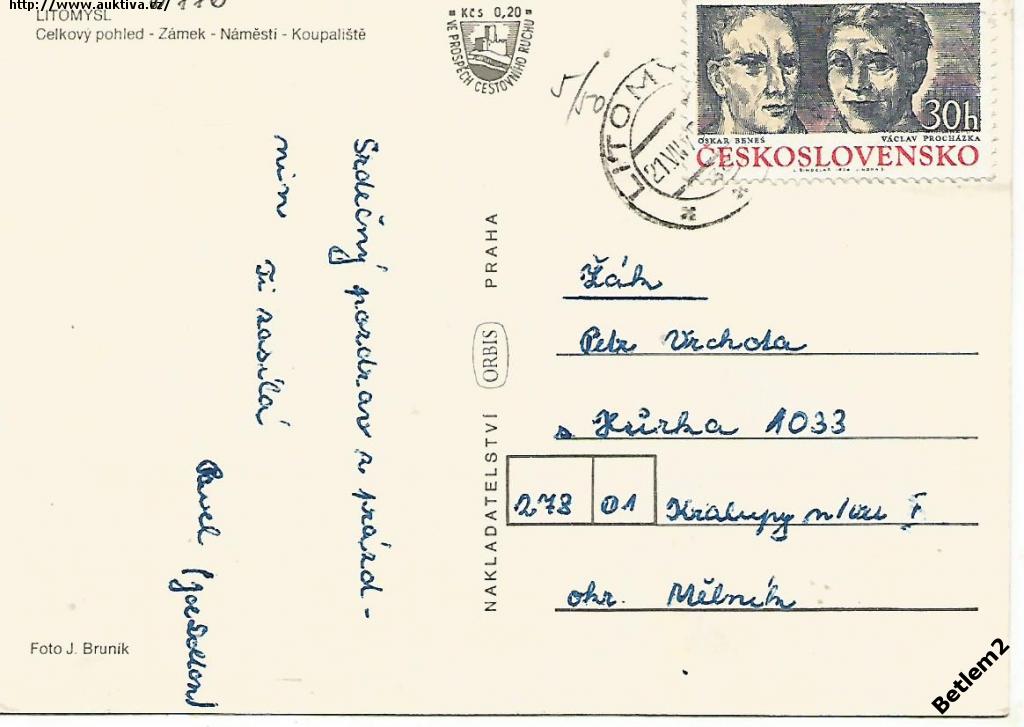 http://www.auktiva.cz/
LITOMYŠL
Celkový pohled - Zámek - Náměstí - Koupaliště
Kčs 0,20
VE PROSPĚCH CESTOVNÍHO RUCHU
5/50
LITOMY
21.VII.7
30h
OSKAR BENEŠ
VÁCLAV PROCHÁZKA
ČESKOSLOVENSKO
Srdečný pozdrav z prázd-
nin
Ti zasílá
Pavel
NAKLADATELSTVÍ ORBIS PRAHA
Žák
Petr Vrchota
s. Hůrka 1033
278 01 Kralupy n/Vl I
okr. Mělník
Foto J. Bruník
Betlem2